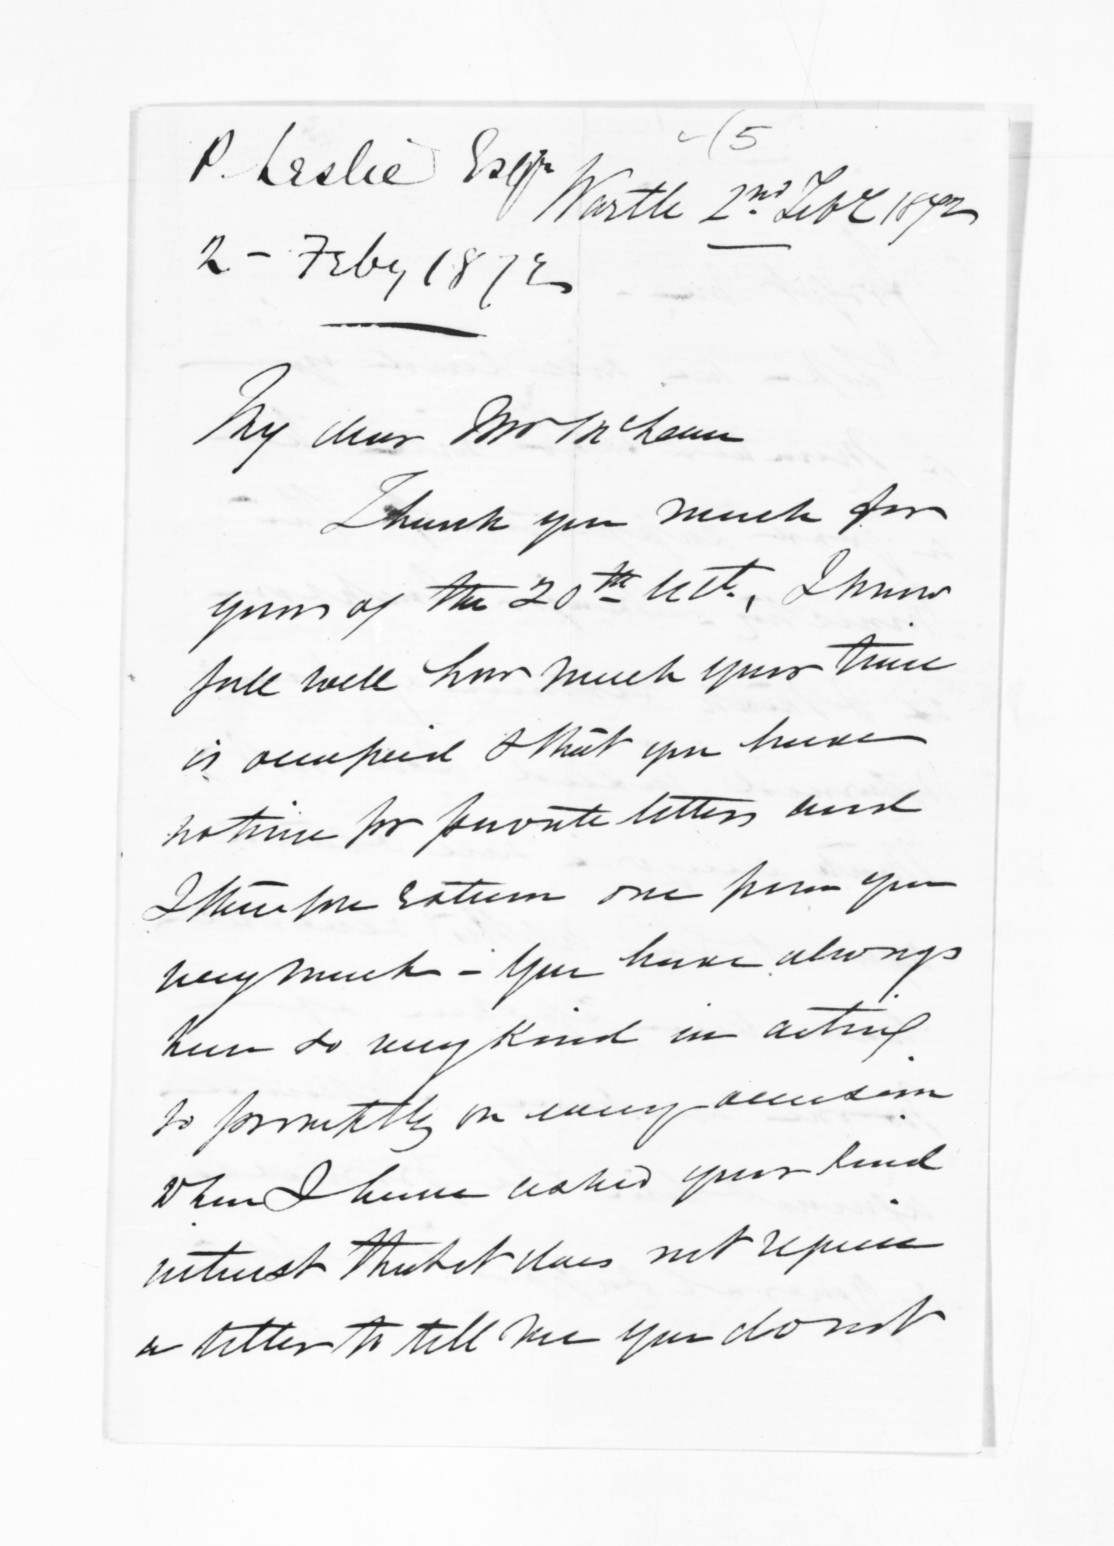 P. Leslie Esqr
2 - Feby 1872
15
Wartle 2nd Feby 1872
My dear Mr McLean
Thank you much for
yours of the 20th ult., I know
full well how much your time
is occupied & that you have
no time for private letters and
I therefore Esteem one from you
very much - You have always
been so very kind in acting
so promptly on every occasion
when I have asked your kind
interest that it does not require
a letter to tell me you do not